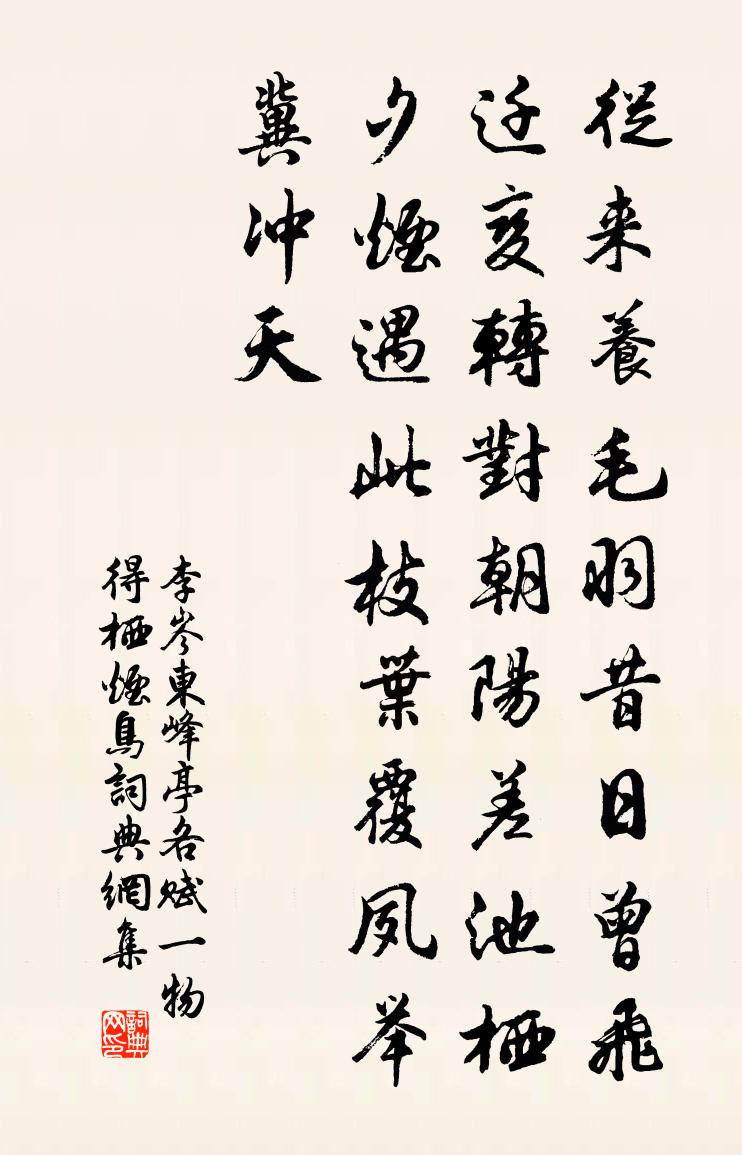 從来養毛羽昔日曾飛
迁变轉對朝陽差池栖
夕煙遇此枝葉覆夙举
冀冲天
李岑東峰亭各赋一物
得栖煙鳥詞典網集
詞典网印